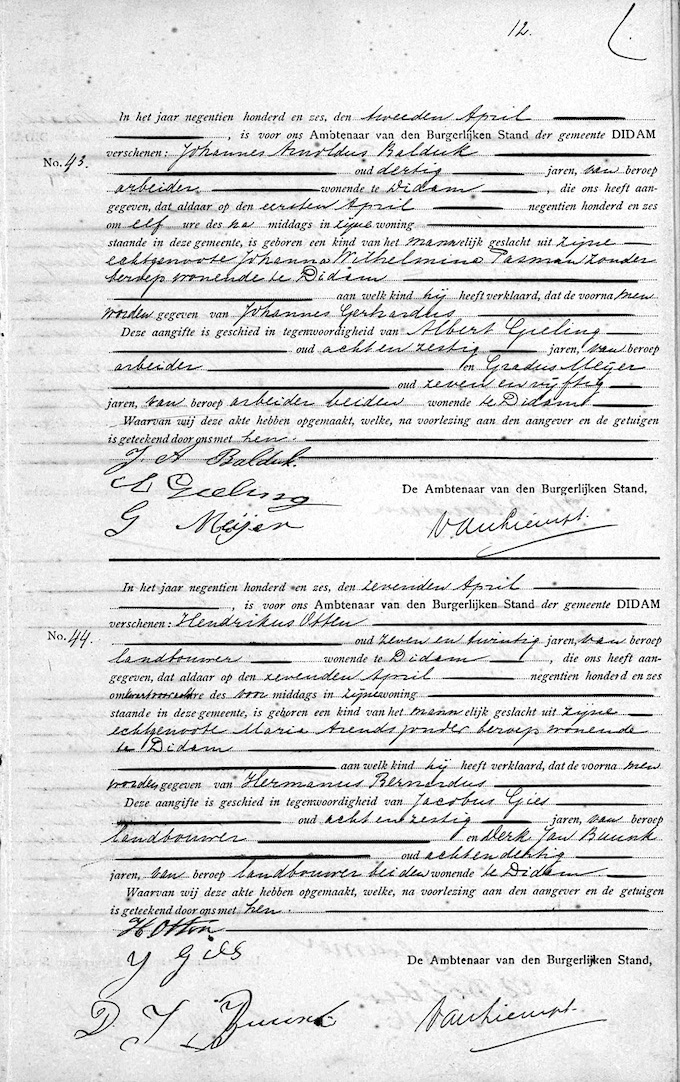 12.
In het jaar negentien honderd en zes, den tweeden April
, is voor ons Ambtenaar van den Burgerlijken Stand der gemeente DIDAM
verschenen: Johannes Arnoldus Balduk
No. 43.
oud dertig jaren, van beroep
arbeider, wonende te Didam, die ons heeft aan-
gegeven, dat aldaar op den eersten April negentien honderd en zes
om elf ure des na middags in zijne woning
staande in deze gemeente, is geboren een kind van het mannelijk geslacht uit zijne
echtgenoote Johanna Wilhelmina Tasman zonder
beroep wonende te Didam
aan welk kind hij heeft verklaard, dat de voorna men
worden gegeven van Johannes Gerhardus
Deze aangifte is geschied in tegenwoordigheid van Albert Gieling
oud acht en zestig jaren, van beroep
arbeider en Gradus Meijer
oud zeven en vijftig
jaren, van beroep arbeider beiden wonende te Didam
Waarvan wij deze akte hebben opgemaakt, welke, na voorlezing aan den aangever en de getuigen
is geteekend door ons met hen.
J. A Balduk.
A Gieling
De Ambtenaar van den Burgerlijken Stand,
G Meijer
In het jaar negentien honderd en zes, den zevenden April
, is voor ons Ambtenaar van den Burgerlijken Stand der gemeente DIDAM
verschenen: Hendrikus Otten
No. 44.
oud zeven en twintig jaren, van beroep
landbouwer wonende te Didam, die ons heeft aan-
gegeven, dat aldaar op den zevenden April negentien honderd en zes
om ure des voor middags in zijne woning
staande in deze gemeente, is geboren een kind van het mannelijk geslacht uit zijne
echtgenoote Maria Arends zonder beroep wonende
te Didam
aan welk kind hij heeft verklaard, dat de voorna men
worden gegeven van Hermanus Bernardus
Deze aangifte is geschied in tegenwoordigheid van Jacobus Gies
oud acht en zestig jaren, van beroep
landbouwer en Derk Jan Buunk
oud acht en dertig
jaren, van beroep landbouwer beiden wonende te Didam
Waarvan wij deze akte hebben opgemaakt, welke, na voorlezing aan den aangever en de getuigen
is geteekend door ons met hen.
H Otten
J Gies
De Ambtenaar van den Burgerlijken Stand,
D. J. Buunk